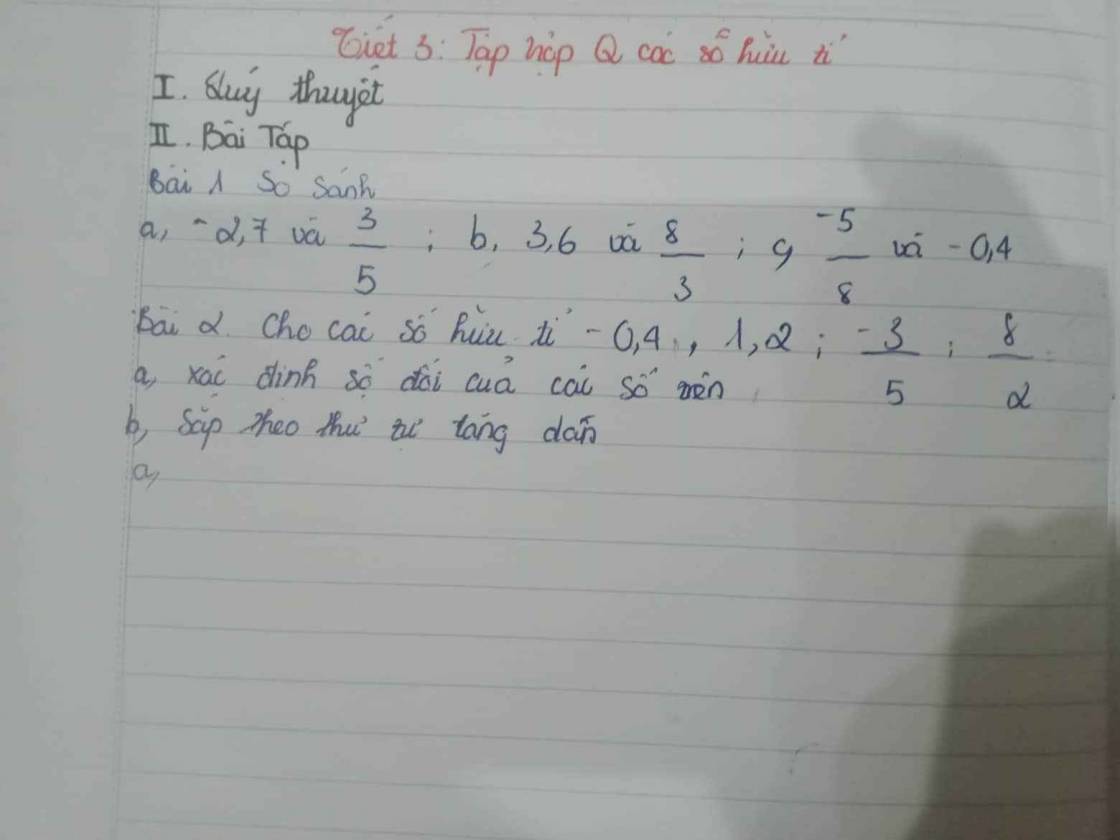 Tiết 3: Tập hợp Q các số hữu tỉ
I. Lý thuyết
II. Bài Tập
Bài 1 So sánh
a, -2,7 và 3/5 ; b, 3,6 và 8/3 ; c, -5/8 và -0,4
Bài 2. Cho các số hữu tỉ -0,4 , 1,2 ; -3/5 ; 8/2
a, xác định số đối của các số trên
b, Sắp theo thứ tự tăng dần
a,